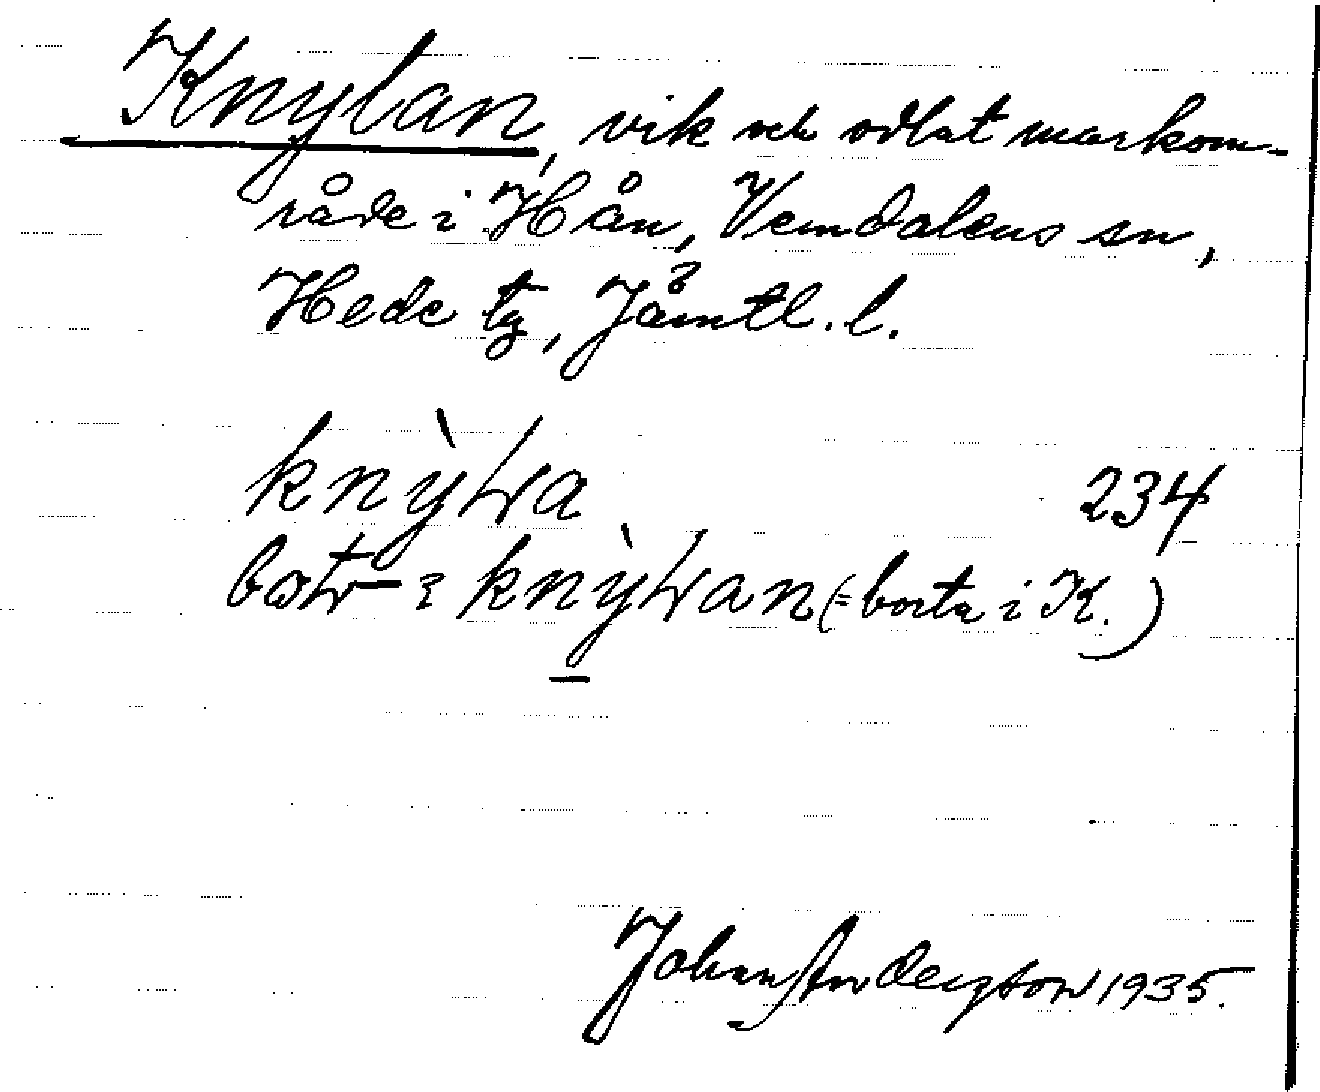 Knylan, vik och odlat markom-
råde i Hån, Vemdalens sn,
Hede tg, Jämtl. l.
234
(= borta i K.)
Johan Andersson 1935.